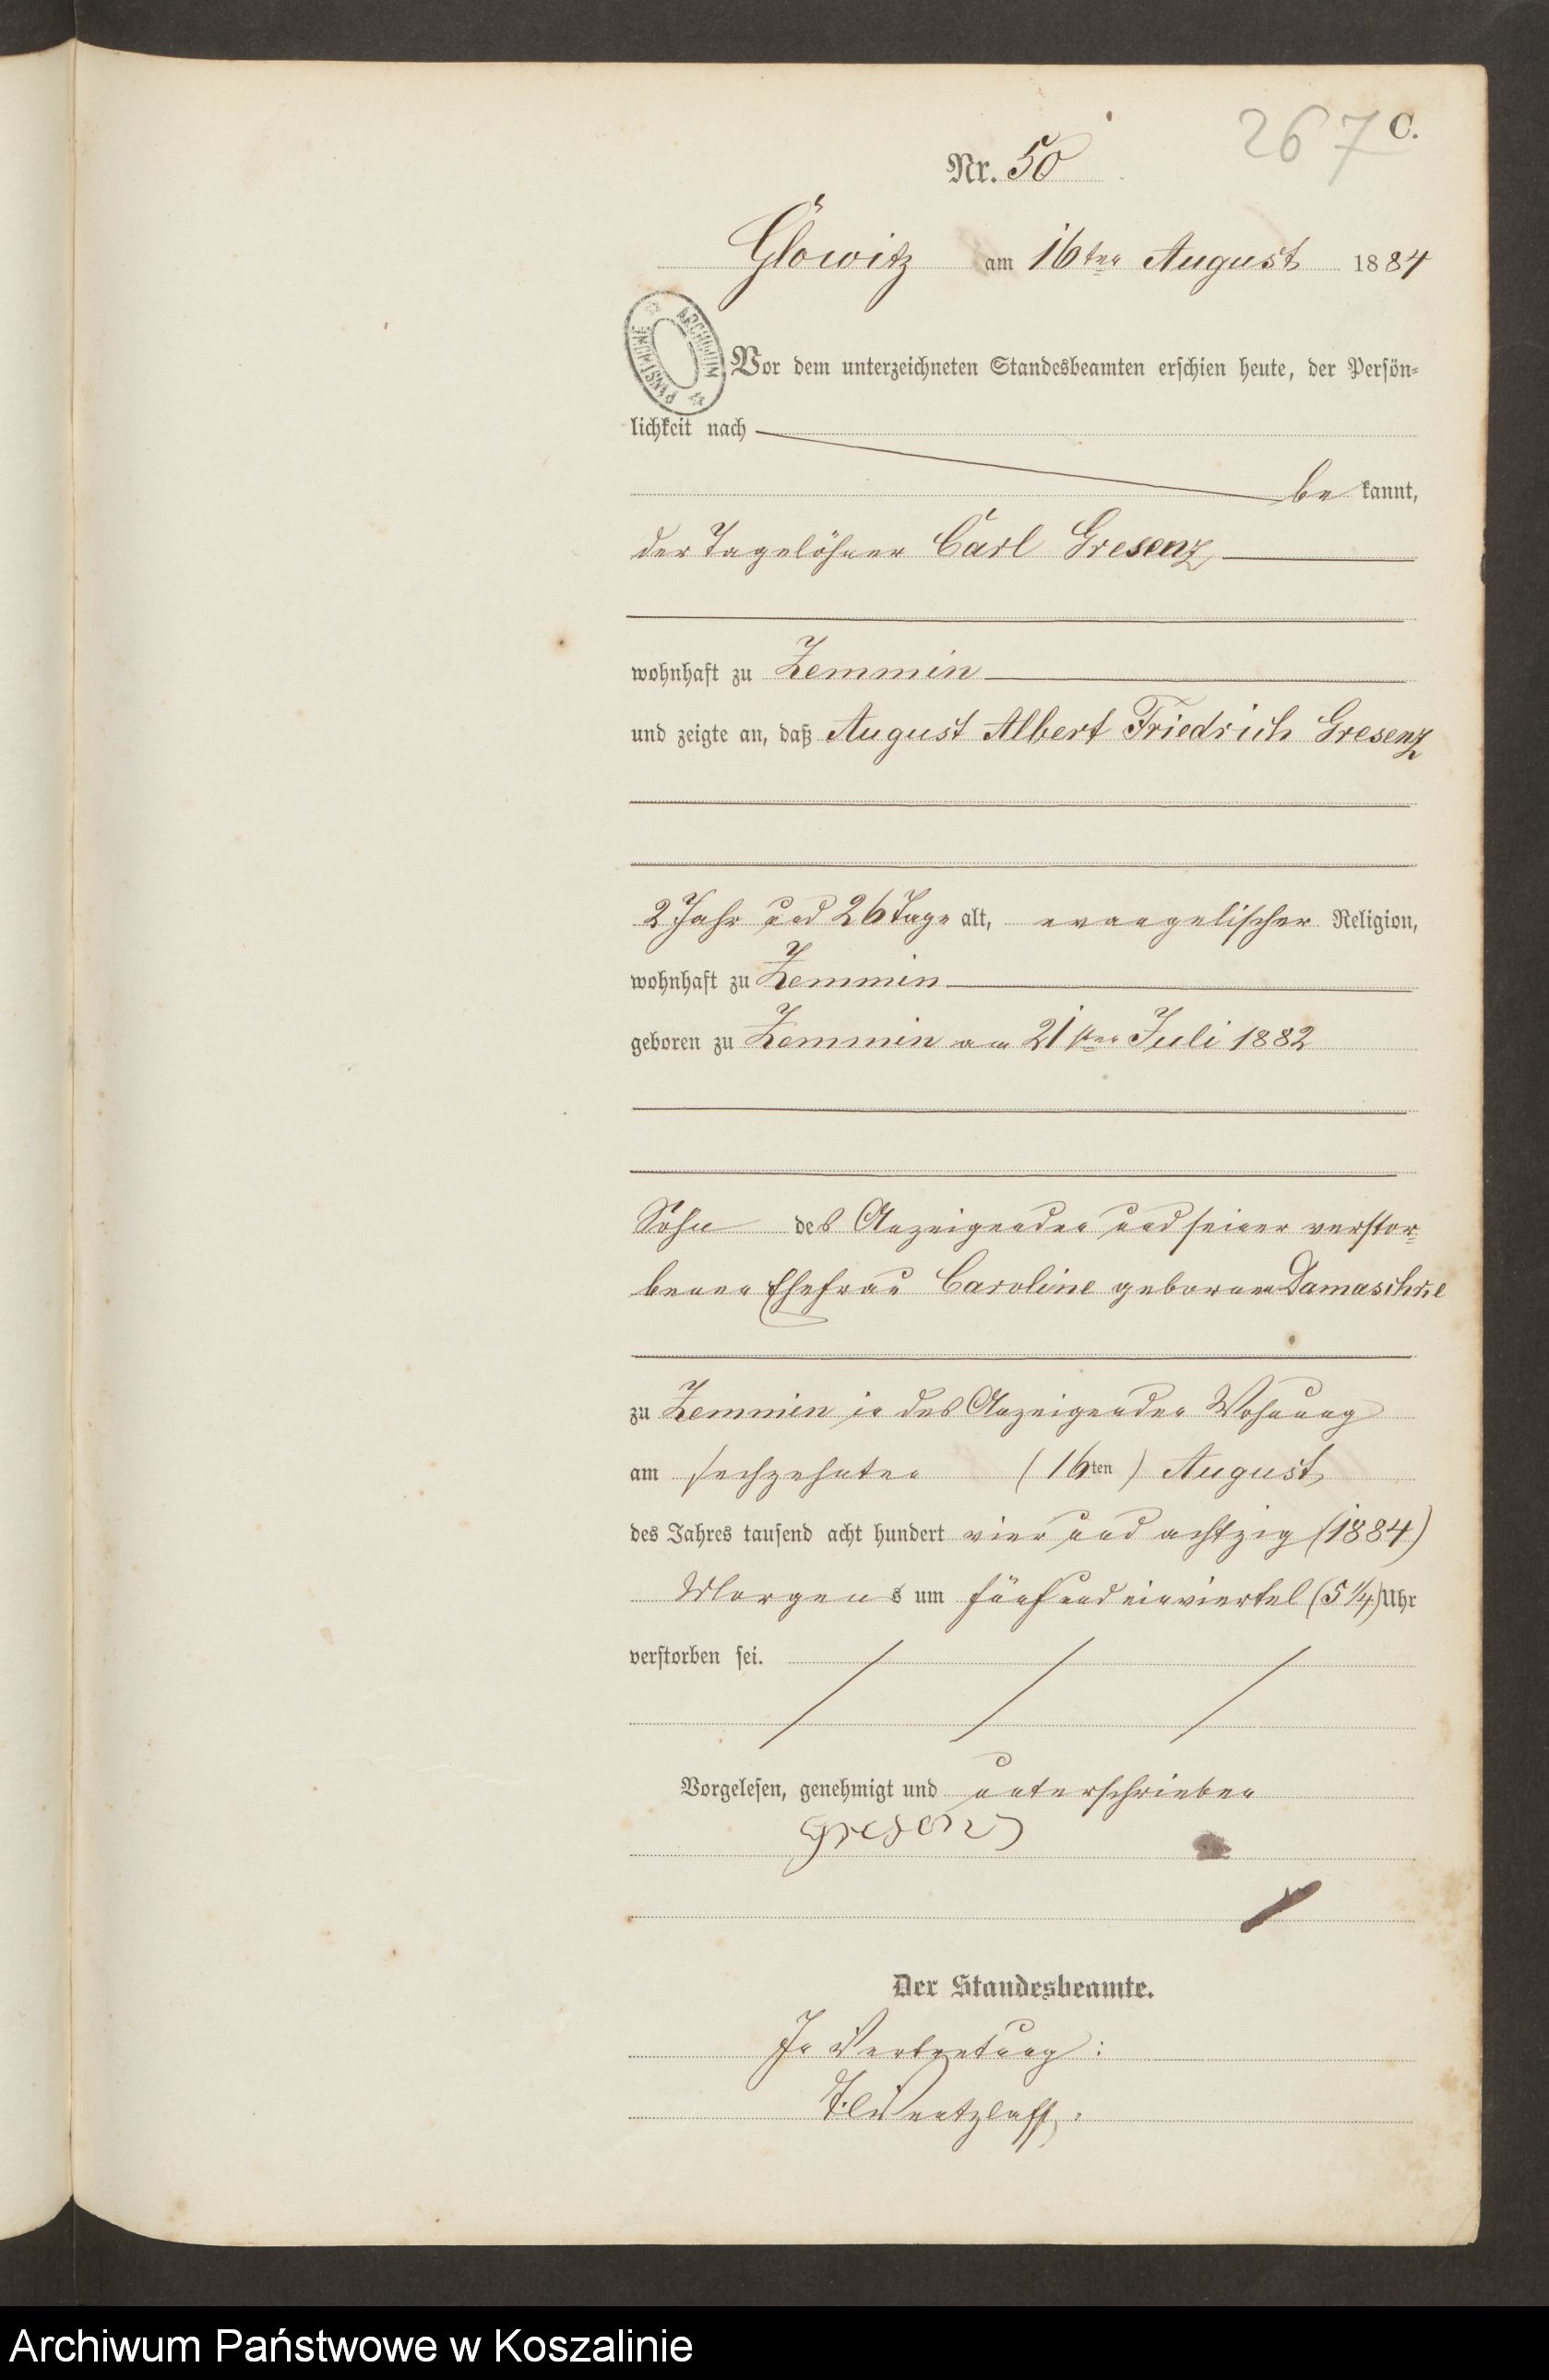 267 C.
Nr. 50
Glowitz am 16ten August 1884
ARCHIWUM PAŃSTWOWE
Vor dem unterzeichneten Standesbeamten erschien heute, der Persön-
lichkeit nach
be kannt,
der Tagelöhner Carl Gresenz
wohnhaft zu Zemmin
und zeigte an, daß August Albert Friedrich Gresenz
2 Jahr und 26 Tage alt, evangelischer Religion,
wohnhaft zu Zemmin
geboren zu Zemmin am 21ten Juli 1882
Sohn des Anzeigenden und seiner verstor-
benen Ehefrau Caroline geborenen Damaschke
zu Zemmin in des Anzeigenden Wohnung
am sechzehnten (16ten) August
des Jahres tausend acht hundert vier und achtzig (1884)
Morgens um fünf und einviertel (5 1/4) Uhr
verstorben sei.
Vorgelesen, genehmigt und unterschrieben
Gresenz
Der Standesbeamte.
In Vertretung:
Archiwum Państwowe w Koszalinie